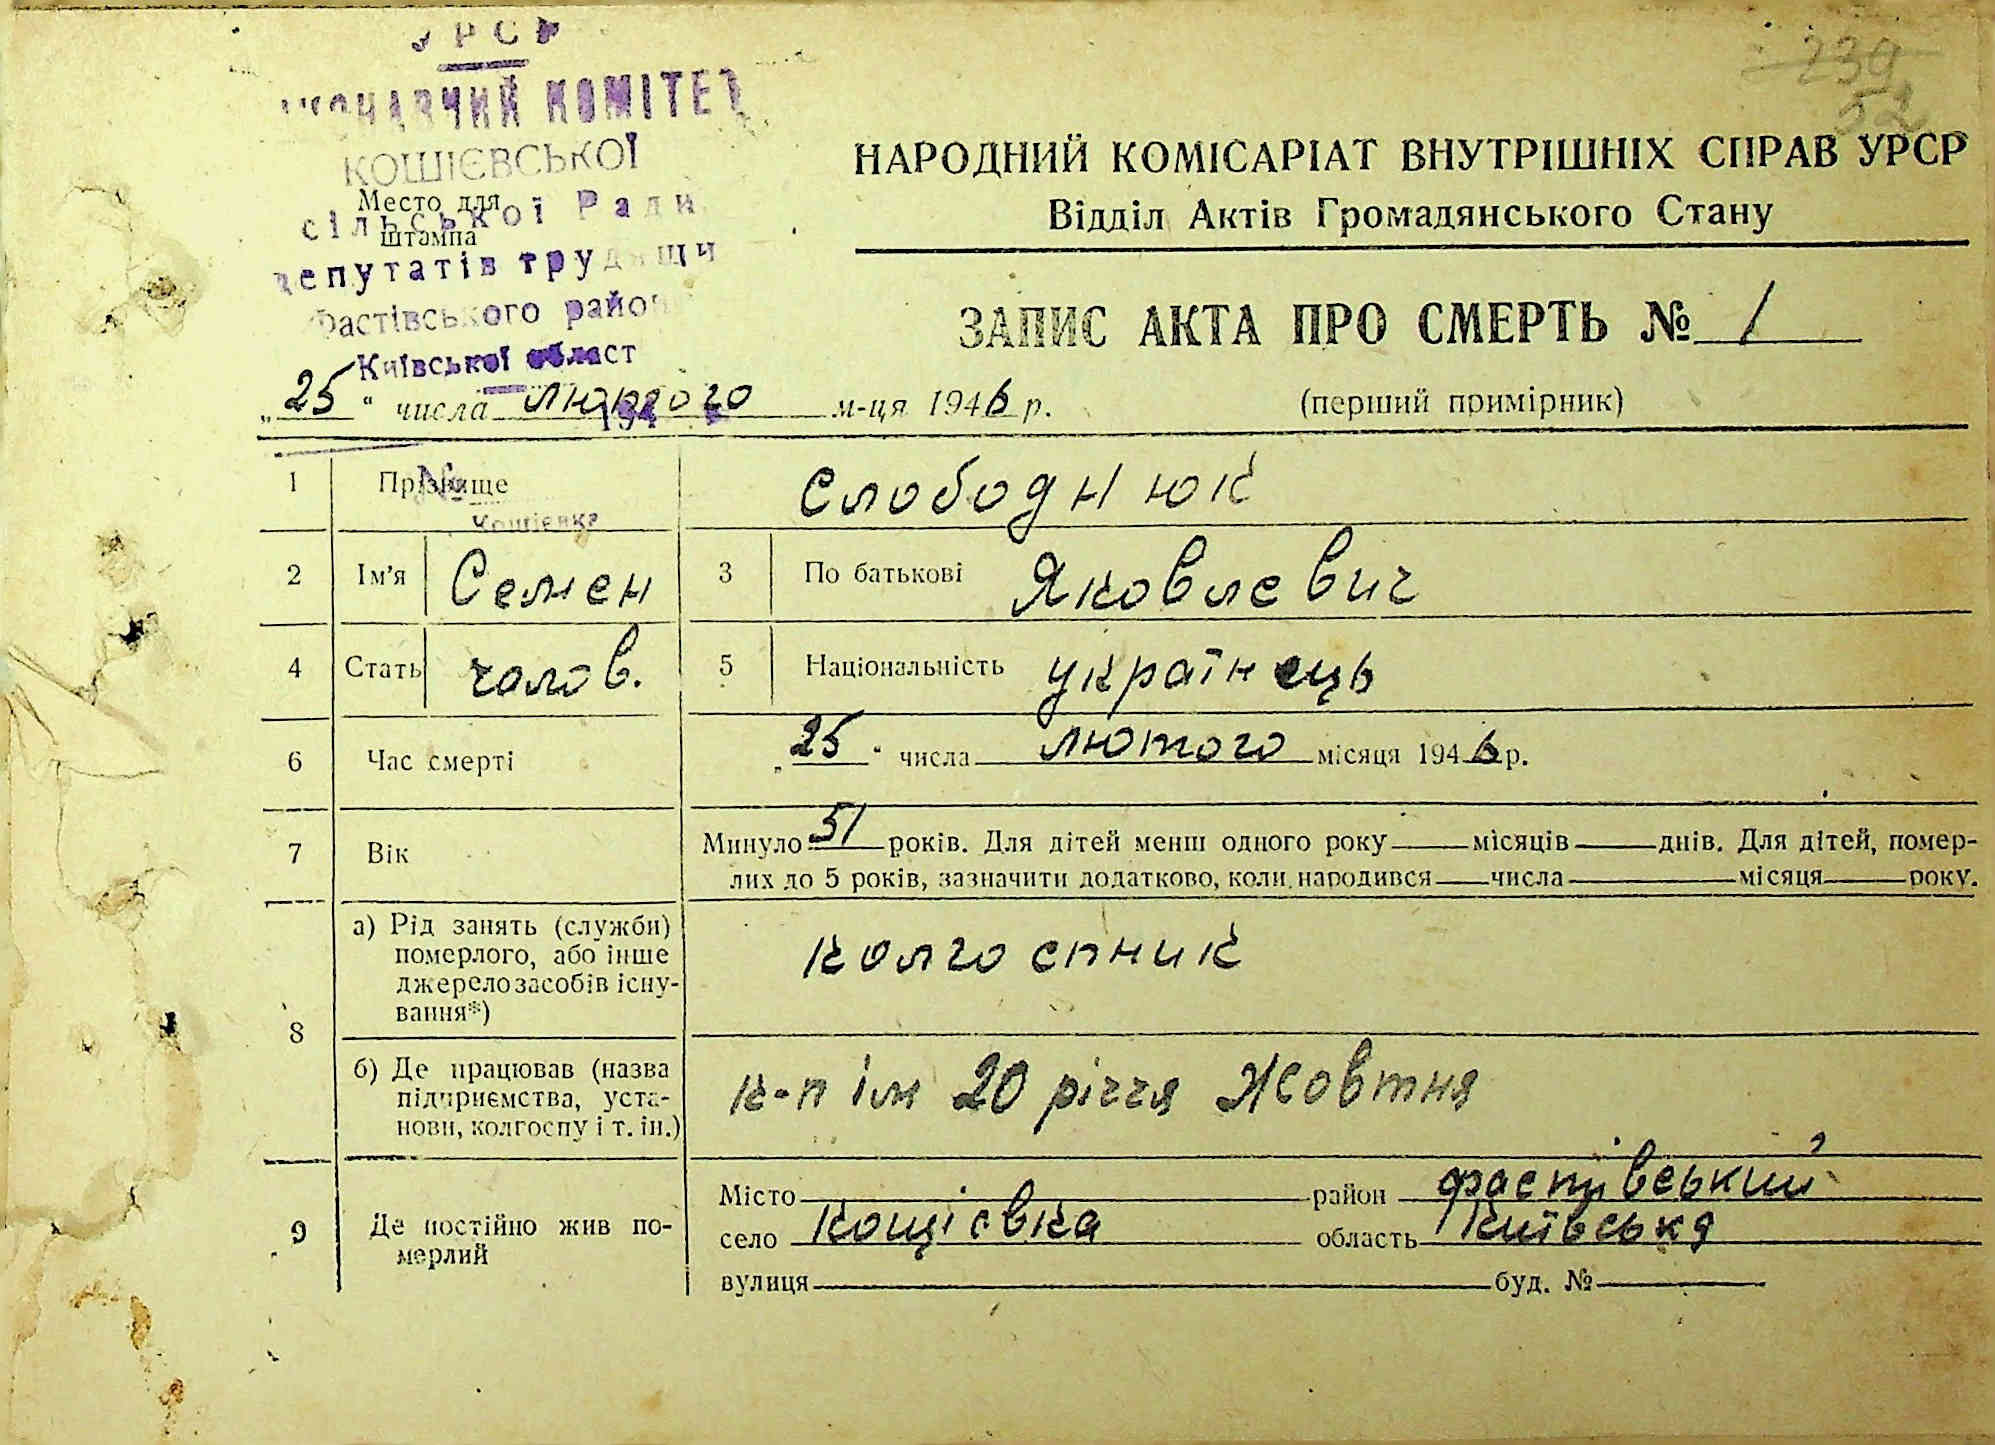 УРСР
ВИКОНАВЧИЙ КОМІТЕТ
КОШІЄВСЬКОЇ
сільської Ради
депутатів трудящи
Фастівського район
Київської област
194
№
Кошіевка
Место для
штампа
239
52
НАРОДНИЙ КОМІСАРІАТ ВНУТРІШНІХ СПРАВ УРСР
Відділ Актів Громадянського Стану
ЗАПИС АКТА ПРО СМЕРТЬ № 1
„25“ числа лютого м-ця 1946 р.
(перший примірник)
1 Прізвище Слободнюк
2 Ім’я Семен 3 По батькові Яковлевич
4 Стать чолов. 5 Національність українець
6 Час смерті „25“ числа лютого місяця 1946 р.
7 Вік Минуло 51 років. Для дітей менш одного року місяців днів. Для дітей, помер-
лих до 5 років, зазначити додатково, коли народився числа місяця року.
8 а) Рід занять (служби)
померлого, або інше
джерело засобів існу-
вання*)
колгоспник
б) Де працював (назва
підприємства, уста-
нови, колгоспу і т. ін.)
к-п ім 20 річчя Жовтня
9 Де постійно жив по-
мерлий
Місто район Фастівський
село Кощієвка область Київська
вулиця буд. №